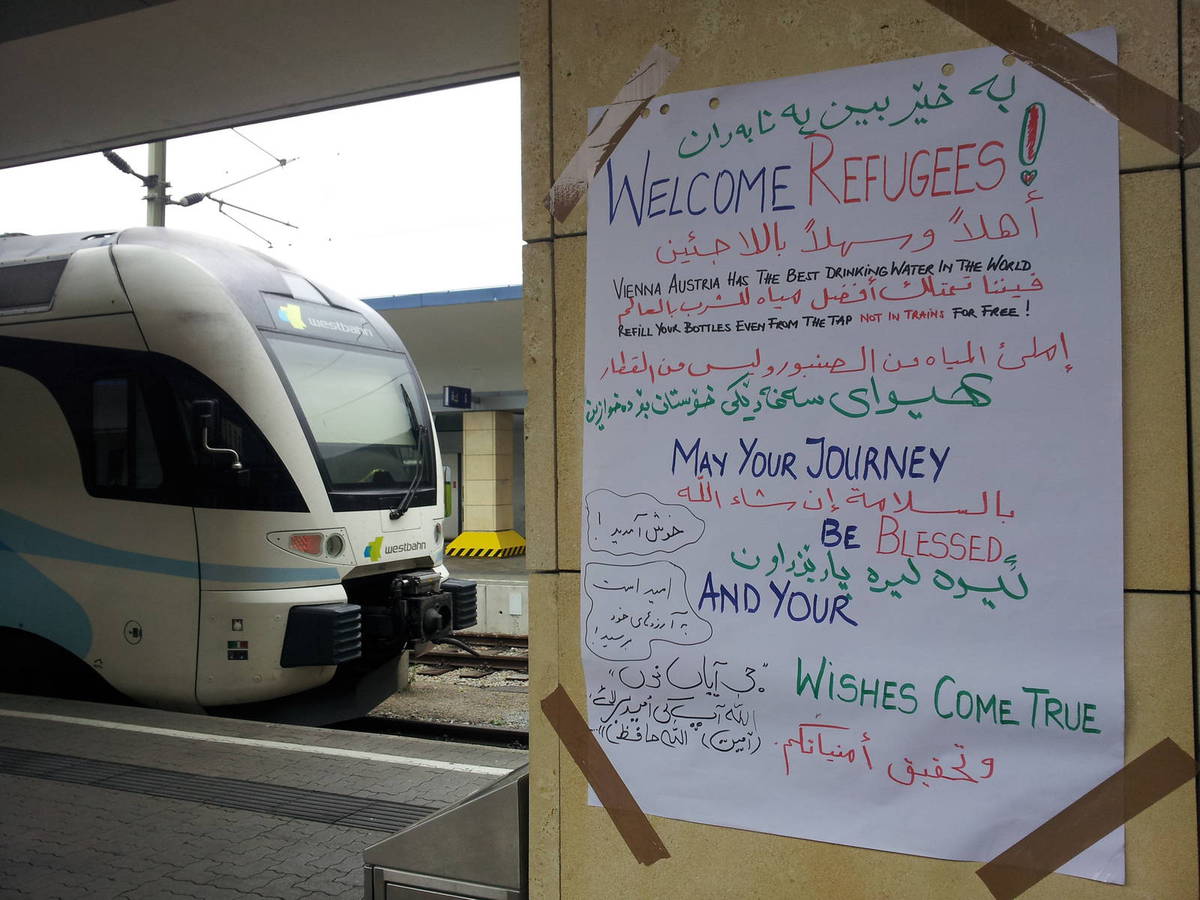 به خێر بین په نابه ران
WELCOME REFUGEES!
أهلاً وسهلاً باللاجئين
VIENNA AUSTRIA HAS THE BEST DRINKING WATER IN THE WORLD
فيننا تمتلك أفضل مياه للشرب بالعالم
REFILL YOUR BOTTLES EVEN FROM THE TAP NOT IN TRAINS FOR FREE!
إملئ المياه من الصنبور وليس من القطار
هیوای سه فه رێکی خۆشتان بۆ ده خوازین
MAY YOUR JOURNEY
بالسلامة إن شاء اللّه
BE BLESSED
خوش آمدید!
AND YOUR
امید است
به آرزوهای خود
برسید!
WISHES COME TRUE
اللہ آپ کی امید
(آمین) اللہ حافظ
وتحقيق أمنياتكم.
westbahn
westbahn